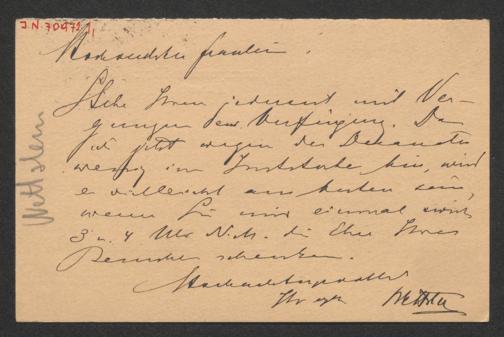 J.N. 70472/1
Hochverehrtes Fräulein.
Stehe Ihnen jederzeit mit Ver-
gnügen zur Verfügung. Da
ich jetzt wegen des Dekanates
wenig im Institute bin, wird
es vielleicht am besten sein,
wenn Sie mir einmal zwisch.
3 u. 4 Uhr N.M. die Ehre Ihres
Besuches schenken.
Hochachtungsvollst
Ihr erg. Wettstein
Wettstein